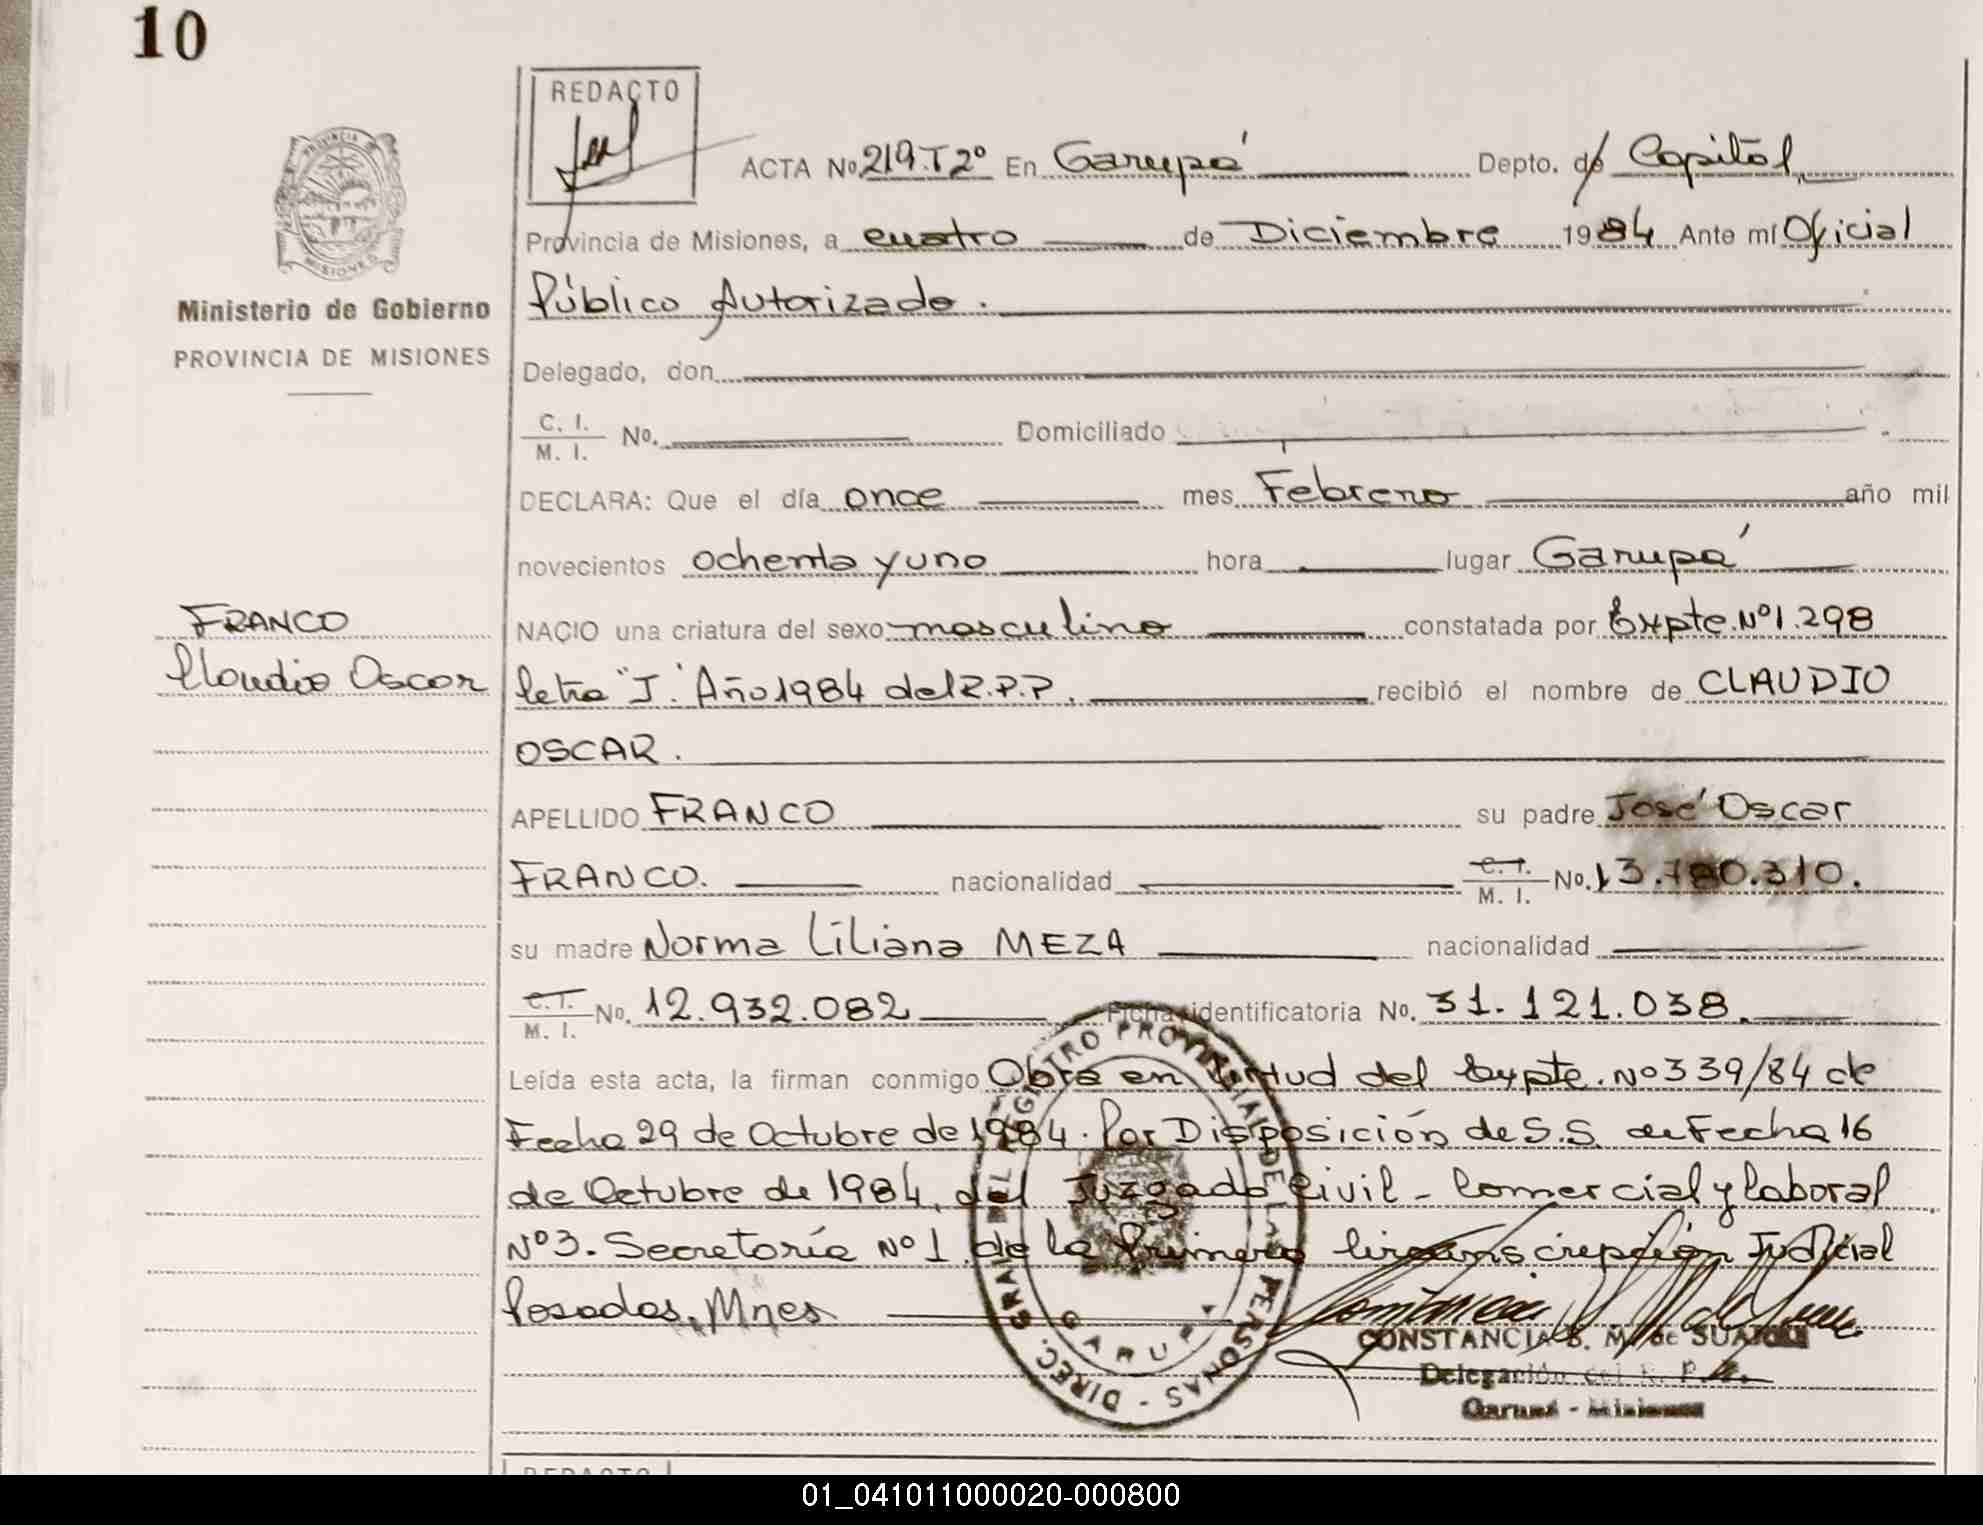 10
REDACTO
PROVINCIA DE
MISIONES
Ministerio de Gobierno
PROVINCIA DE MISIONES
ACTA No. 219.T2º En Garupá Depto. de Capital,
Provincia de Misiones, a cuatro de Diciembre 1984 Ante mí Oficial
Público Autorizado.
Delegado, don
C. I.
M. I. No. Domiciliado
DECLARA: Que el día once mes Febrero año mil
novecientos ochenta y uno hora lugar Garupá
FRANCO
Claudio Oscar
NACIO una criatura del sexo masculino constatada por Expte. Nº 1.298
letra "J." Año 1984 del R.P.P. recibió el nombre de CLAUDIO
OSCAR.
APELLIDO FRANCO su padre José Oscar
FRANCO. nacionalidad C. I. M. I. No. 13.780.310.
su madre Norma Liliana MEZA nacionalidad
C. I. M. I. No. 12.932.082 Ficha identificatoria No. 31.121.038.
Leída esta acta, la firman conmigo Obra en virtud del Expte. Nº 339/84 de
Fecha 29 de Octubre de 1984. Por Disposición de S.S. de Fecha 16
de Octubre de 1984, del Juzgado Civil - Comercial y Laboral
Nº 3. Secretaría Nº 1, de la Primera Circunscripción Judicial
Posadas, Mnes
DIREC. GRAL DEL REGISTRO PROVINCIAL DE LAS PERSONAS -
GARUPA
CONSTANCIA S. M. de SUAREZ
Delegación del R. P. P.
Garupá - Misiones
REDACTO
01_041011000020-000800